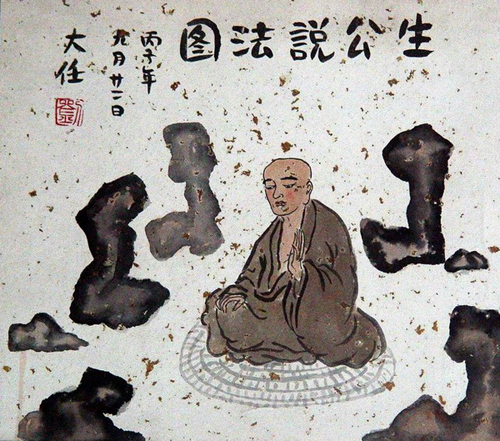 生公說法图
丙子年
九月廿二日
大任